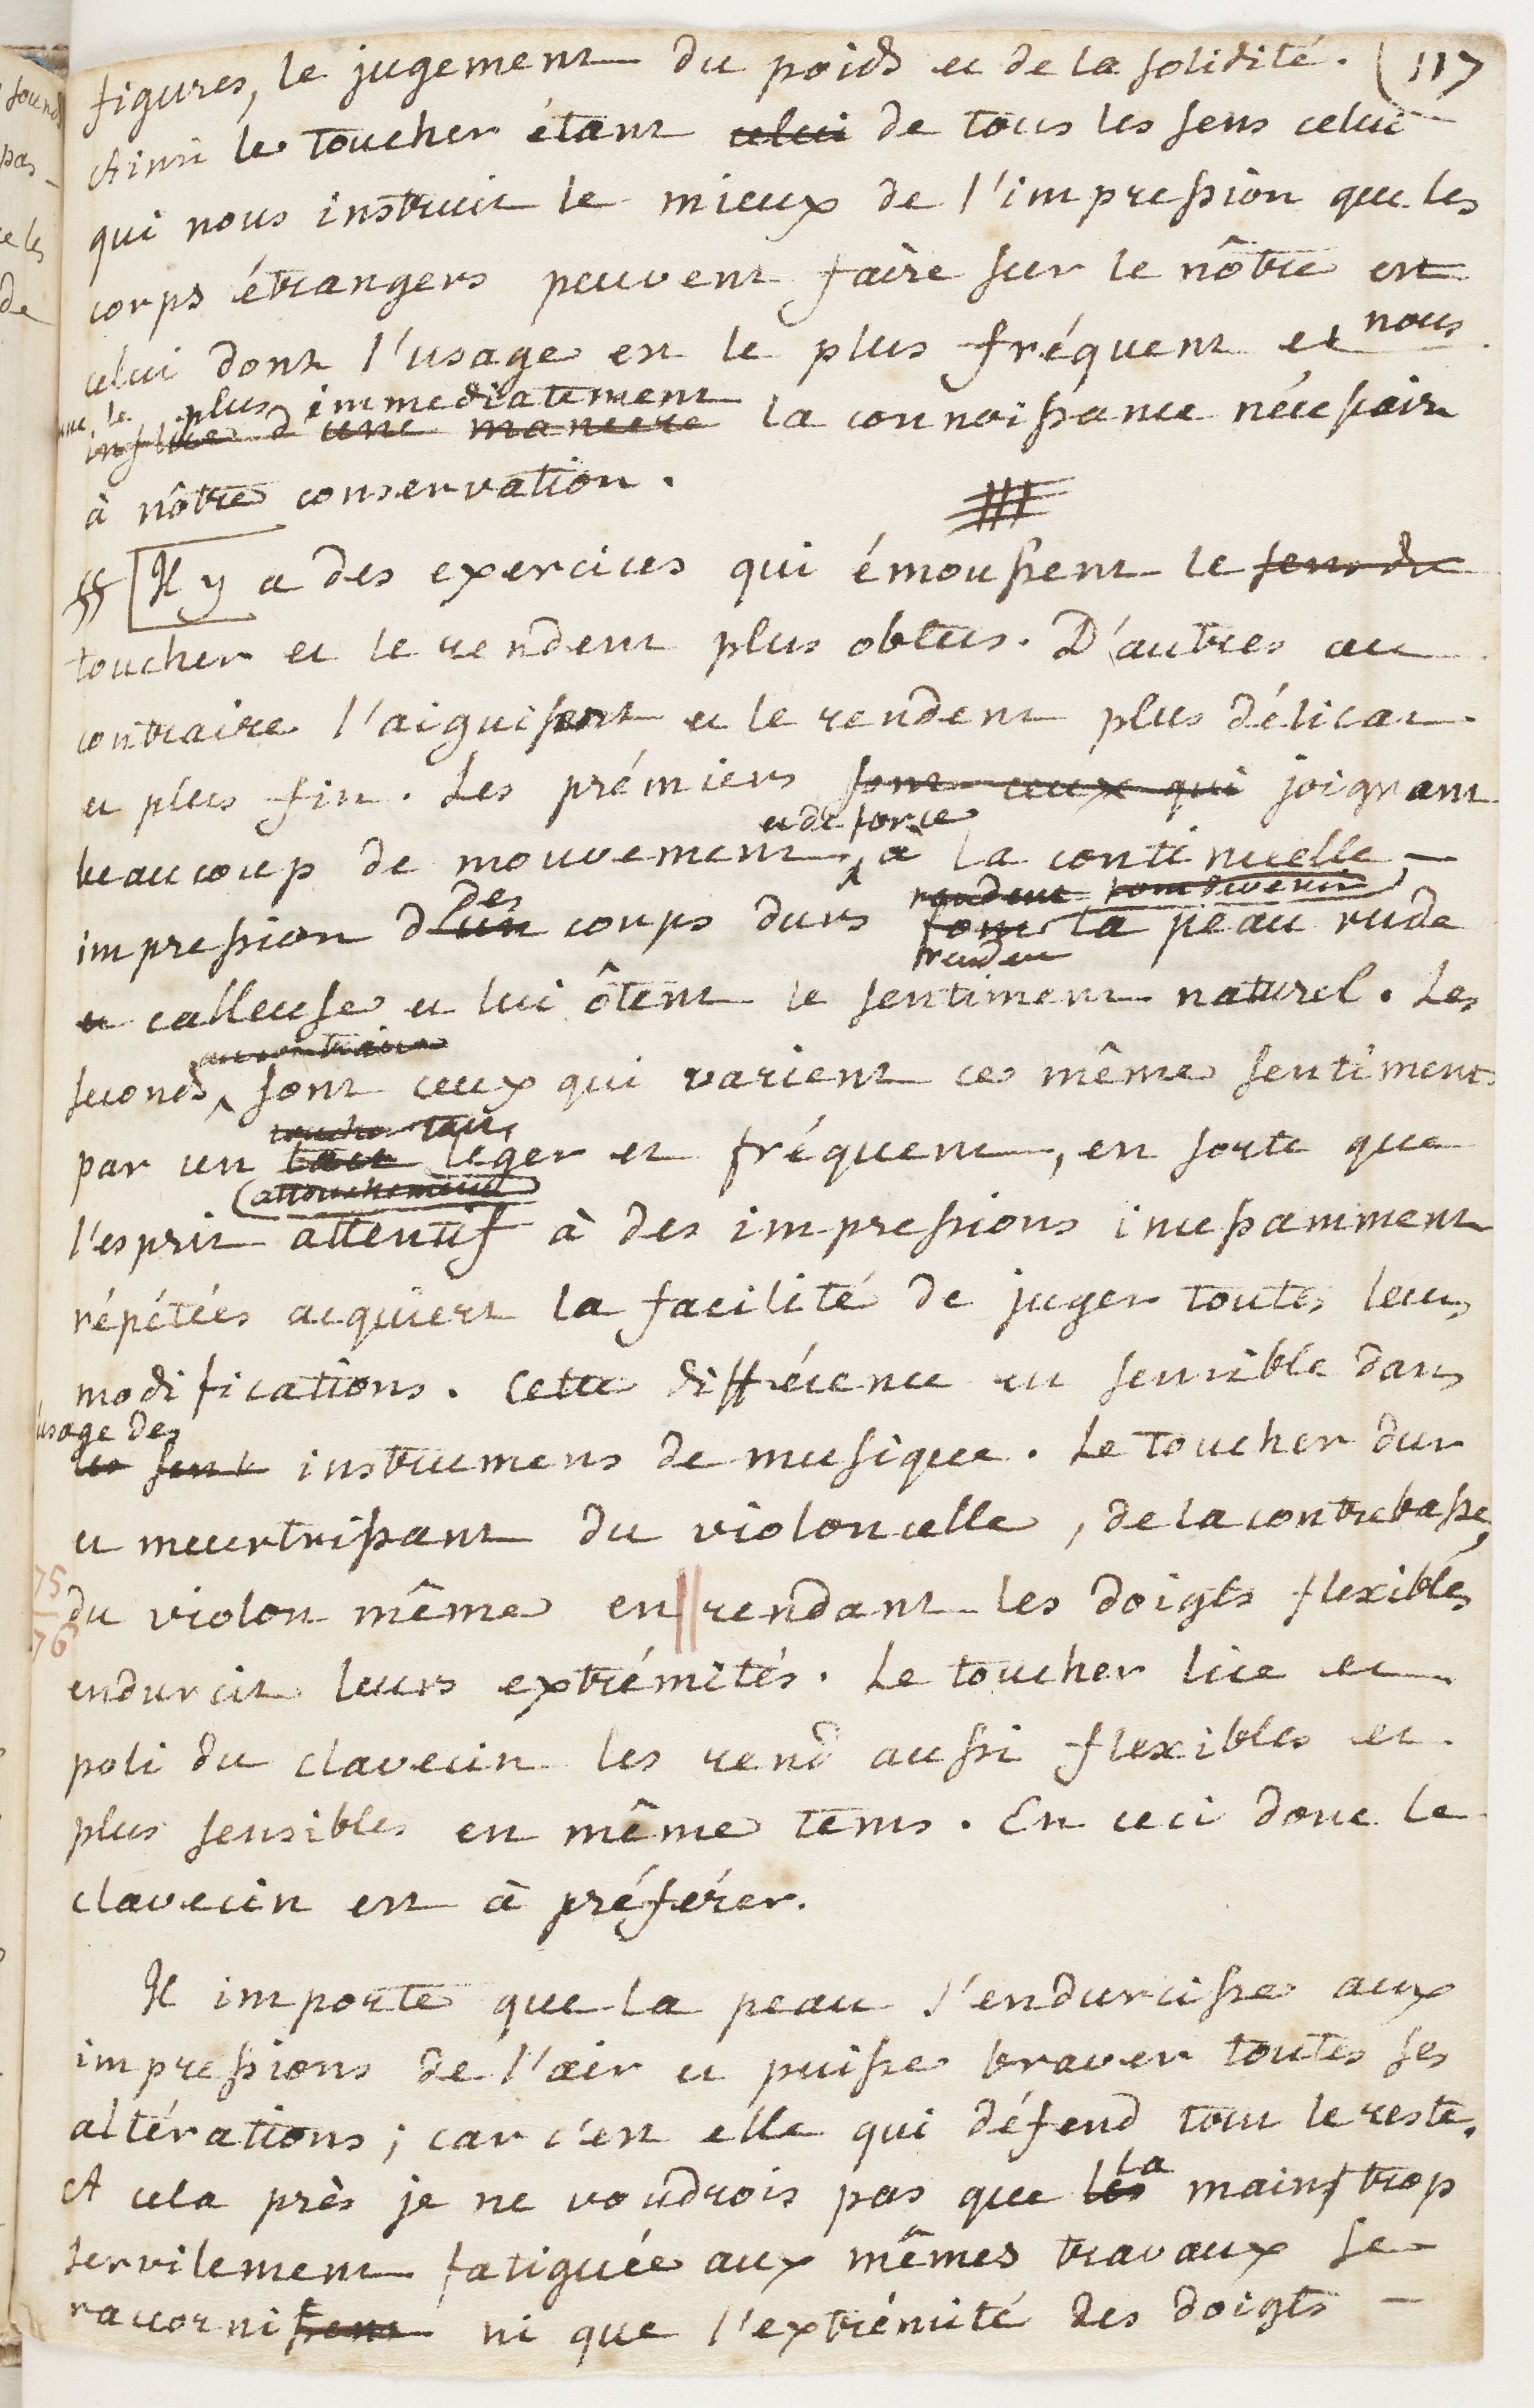 figures, le jugement du poids et de la solidité. (117
Ainsi le toucher étant celui de tous les sens celui
qui nous instruit le mieux de l'impression que les
corps étrangers peuvent faire sur le nôtre est
celui dont l'usage est le plus fréquent et nous
le plus immediatement
d'une maniere la connoissance nécessaire
à nôtre conservation.
§§ Il y a des exercices qui émoussent le sens du
toucher et le rendent plus obtus. D'autres au
contraire l'aiguisent et le rendent plus délicat
et plus fin. Les prémiers sont ceux qui joignant
et de force
beaucoup de mouvement, à la continuelle
des rendent font devenir
impression d'un corps durs font la peau rude
rendent
et calleuse et lui ôtent le sentiment naturel. Les
au contraire
seconds sont ceux qui varient ce même sentiment
toucher tact
par un tact leger et fréquent, en sorte que
(attouchement)
l'esprit attentif à des impressions incessamment
répétées acquiert la facilité de juger toutes leurs
modifications. Cette différence est sensible dans
usage des
les instrumens de musique. Le toucher dur
et meurtrissant du violoncelle, de la contrebasse,
75
du violon même en || rendant les doigts flexibles
76
endurcit leurs extrémités. Le toucher lice et
poli du clavecin les rend aussi flexibles et
plus sensibles en même tems. En ceci donc le
clavecin est à préférer.
Il importe que la peau s'endurcisse aux
impressions de l'air et puisse braver toutes ses
altérations; car c'est elle qui défend tout le reste.
la
A cela près je ne voudrois pas que les mains trop
servilement fatiguée aux mêmes travaux se
raccornissent ni que l'extrémité des doigts